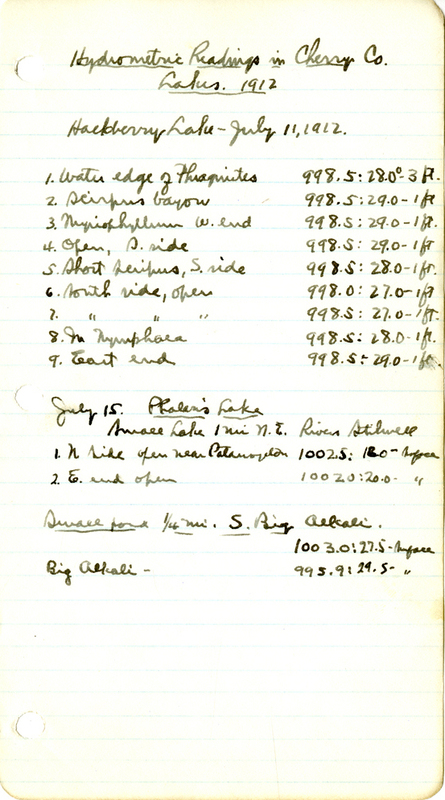 Hydrometric Readings in Cherry Co.
Lakes. 1912
Hackberry Lake - July 11, 1912.
1. Water edge of Phragmites 998.5: 28.0° - 3 ft.
2. Scirpus bayou 998.5: 29.0 - 1 ft
3. Myriophyllum W. end 998.5: 29.0 - 1 ft.
4. Open, S. side 998.5: 29.0 - 1 ft
5. Short scirpus, S. side 998.5: 28.0 - 1 ft.
6. North side, open 998.0: 27.0 - 1 ft
7. " " " 998.5: 27.0 - 1 ft.
8. In Nymphaea 998.5: 28.0 - 1 ft.
9. East end 998.5: 29.0 - 1 ft.
July 15. Phalen's Lake
Small Lake 1 mi N.E. Rivers Stilwell
1. N side open near Potamogeton 1002.5: - surface
2. E. end open 1002.0: 20.0 - "
Small pond 1/4 mi. S. Big Alkali.
1003.0: 27.5 - surface
Big Alkali - 995.9: 29.5 - "